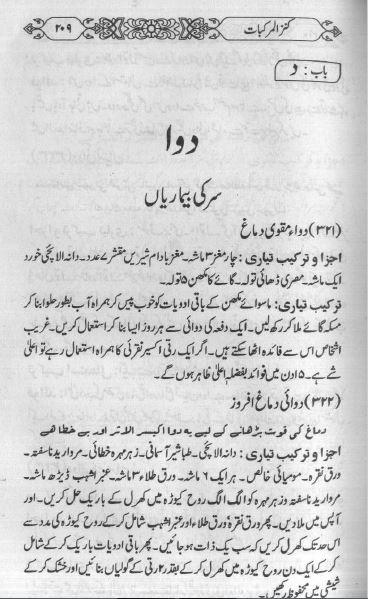 کنز المرکبات
۲۰۹
باب : د
دوا
سر کی بیماریاں
(۳۲۱) دواء مقوی دماغ
اجزا و ترکیب تیاری : چار مغز ۳ ماشہ۔ مغز بادام شیریں مقشر ۷ عدد۔ دانہ الائچی خورد
ایک ماشہ۔ مصری ڈھائی تولہ۔ گائے کا مکھن ۵ تولہ۔
ترکیب تیاری : ماسوائے مکھن کے باقی ادویات کو خوب پیس کر ہمراہ آب بطور حلوا بنا کر
مسکہ گائے ملا کر رکھ لیں۔ ایک دفعہ کی دوائی ہے ہر روز ایسا بنا کر استعمال کریں۔ غریب
اشخاص اس سے فائدہ اٹھا سکتے ہیں۔ اگر ایک رتی اکسیر نقرئی کا ہمراہ استعمال رہے تو اعلیٰ
شے ہے۔ ۱۵ دن میں فوائد بفضلہٖ اعلیٰ ظاہر ہوں گے۔
(۳۲۲) دوائی دماغ افروز
دماغ کی قوت بڑھانے کے لیے یہ دوا اکسیر الاثر اور بے خطا ہے
اجزا و ترکیب تیاری : دانہ الائچی۔ طباشیر آسمانی۔ زہر مہرہ خطائی۔ مروارید ناسفتہ۔
ورق نقرہ۔ مومیائی خالص۔ ہر ایک ۶ ماشہ۔ ورق طلاء ۳ ماشہ۔ عنبر اشہب ڈیڑھ ماشہ۔
مروارید ناسفتہ و زہر مہرہ کو الگ الگ روح کیوڑہ میں کھرل کے باریک حل کریں۔ اور
آپس میں ملا دیں۔ پھر ورق نقرہ و ورق طلاء اور عنبر اشہب شامل کر کے روح کیوڑہ کی مدد سے
اس حد تک کھرل کریں کہ سب یک ذات ہو جائیں۔ پھر باقی ادویات باریک کر کے شامل
کر کے ایک دن روح کیوڑہ میں کھرل کر کے بقدر ۲ رتی کے گولیاں بنائیں اور خشک کر کے
شیشی میں محفوظ رکھیں۔